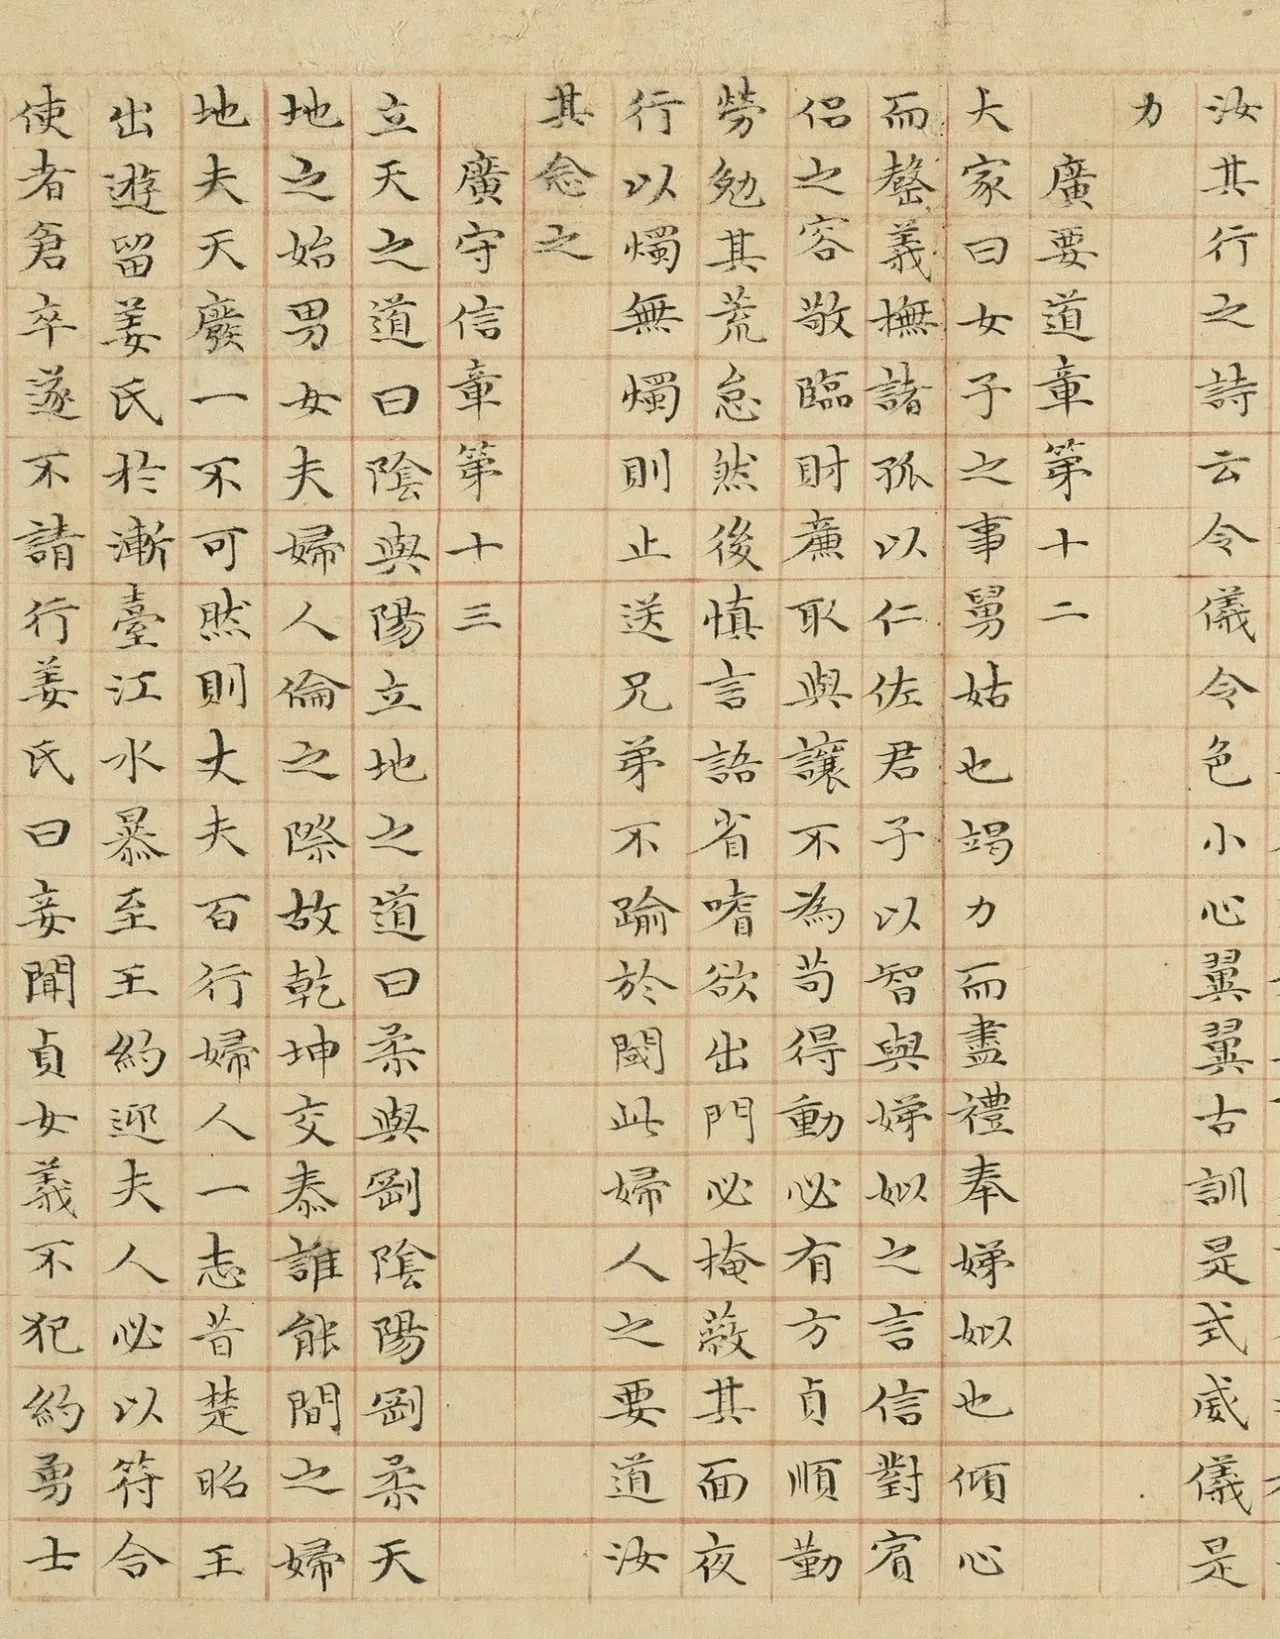 汝其行之詩云令儀令色小心翼翼古訓是式威儀是
力
廣要道章第十二
大家曰女子之事舅姑也竭力而盡禮奉娣姒也傾心
而罄義撫諸孤以仁佐君子以智與娣姒之言信對賓
侶之容敬臨財廉取與讓不為苟得動必有方貞順勤
勞勉其荒怠然後慎言語省嗜欲出門必掩蔽其面夜
行以燭無燭則止送兄弟不踰於閾此婦人之要道汝
其念之
廣守信章第十三
立天之道曰陰與陽立地之道曰柔與剛陰陽剛柔天
地之始男女夫婦人倫之際故乾坤交泰誰能間之婦
地夫天廢一不可然則丈夫百行婦人一志昔楚昭王
出遊留姜氏於漸臺江水暴至王約迎夫人必以符合
使者倉卒遂不請行姜氏曰妾聞貞女義不犯約勇士